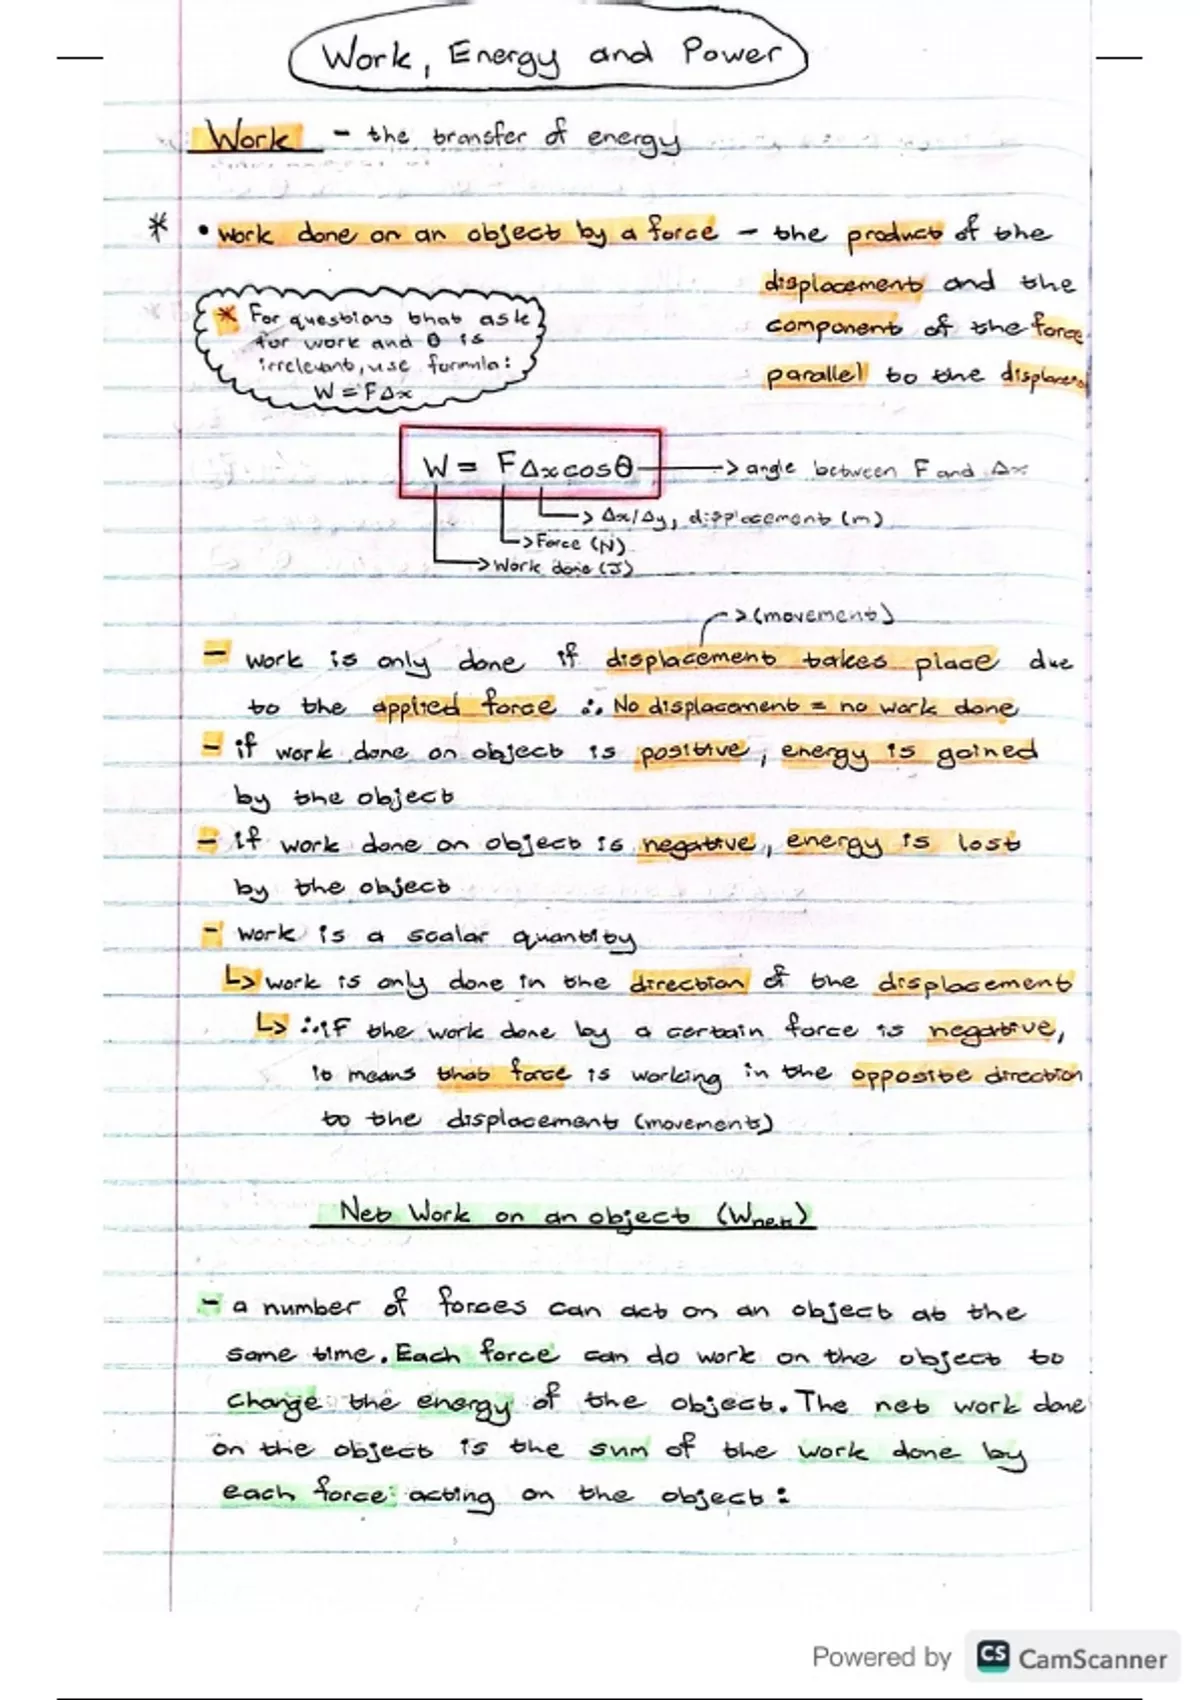 Work, Energy and Power
Work - the transfer of energy
* • work done on an object by a force - the product of the
displacement and the
component of the force
parallel to the displacem
* For questions that ask
for work and θ is
irrelevant, use formula:
W = FΔx
W = FΔxcosθ -> angle between F and Δx
-> Δx/Δy, displacement (m)
-> Force (N)
-> Work done (J)
-> (movement)
- work is only done if displacement takes place due
to the applied force ∴ No displacement = no work done
- if work done on object is positive, energy is gained
by the object
- if work done on object is negative, energy is lost
by the object
- work is a scalar quantity
↳ work is only done in the direction of the displacement
↳ ∴ if the work done by a certain force is negative,
it means that force is working in the opposite direction
to the displacement (movement)
Net Work on an object (Wnet)
- a number of forces can act on an object at the
same time. Each force can do work on the object to
change the energy of the object. The net work done
on the object is the sum of the work done by
each force acting on the object:
Powered by CS CamScanner